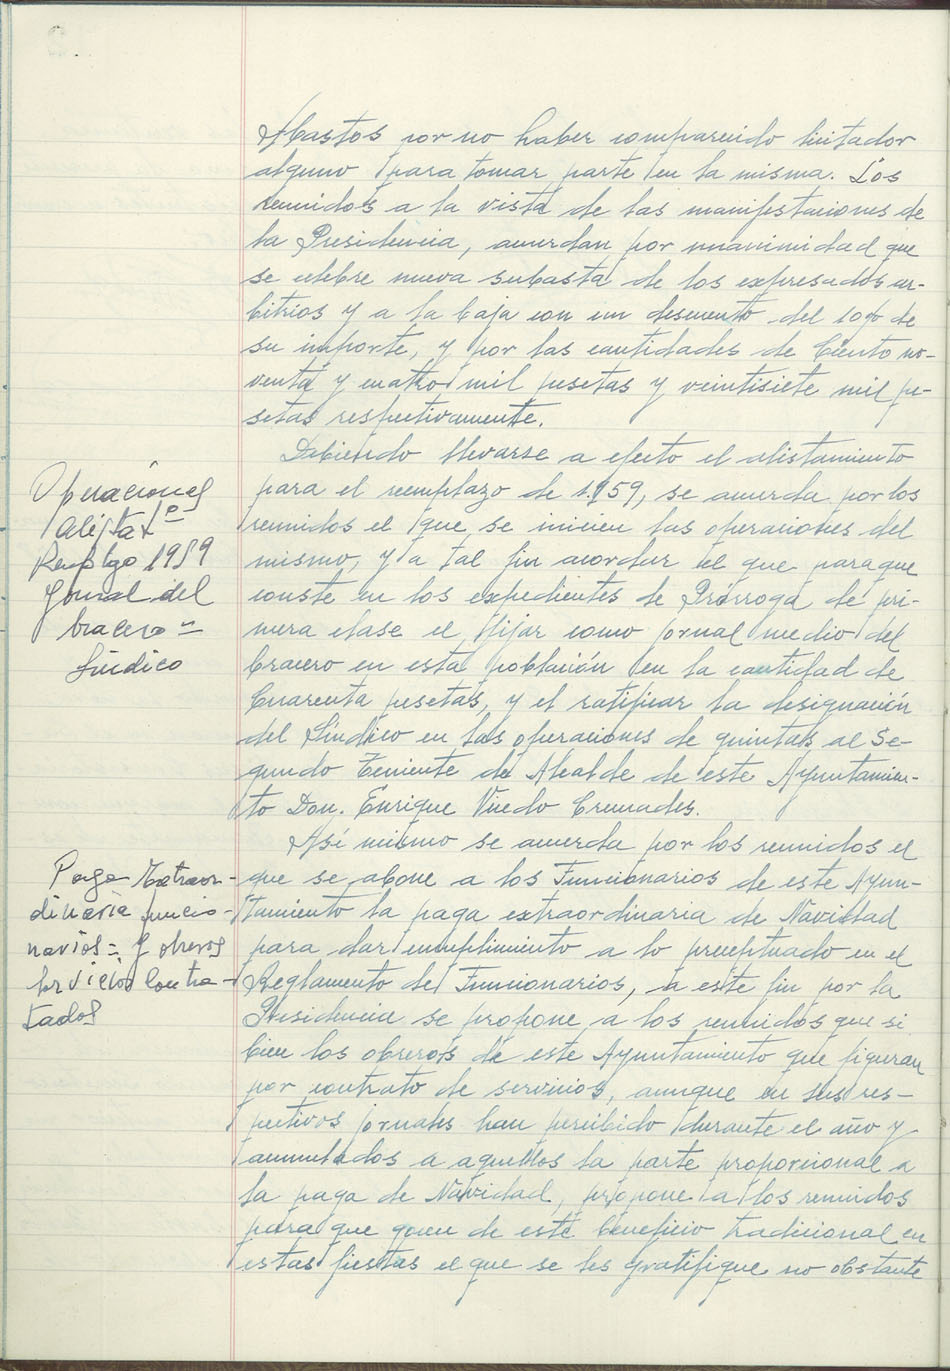 Abastos por no haber comparecido licitador
alguno para tomar parte en la misma. Los
reunidos a la vista de las manifestaciones de
la Presidencia, acuerdan por unanimidad que
se celebre nueva subasta de los expresados ar-
bitrios y a la baja con un descuento del 10% de
su importe, y por las cantidades de Ciento no-
venta y cuatro mil pesetas y veintisiete mil pe-
setas respectivamente.
Debiendo llevarse a efecto el alistamiento
para el reemplazo de 1.959, se acuerda por los
reunidos el que se inicien las operaciones del
mismo, y a tal fin acordar el que para que
conste en los expedientes de Prórroga de pri-
mera clase el fijar como jornal medio del
bracero en esta población en la cantidad de
Cuarenta pesetas, y el ratificar la designación
del Síndico en las operaciones de quintas al Se-
gundo Teniente de Alcalde de este Ayuntamien-
to Don. Enrique Vicedo Cremades.
Así mismo se acuerda por los reunidos el
que se abone a los Funcionarios de este Ayun-
tamiento la paga extraordinaria de Navidad
para dar cumplimiento a lo preceptuado en el
Reglamento de Funcionarios, a este fin por la
Presidencia se propone a los reunidos que si
bien los obreros de este Ayuntamiento que figuran
por contrato de servicios, aunque en sus res-
pectivos jornales han percibido durante el año y
acumulados a aquellos la parte proporcional a
la paga de Navidad, propone a los reunidos
para que gocen de este beneficio tradicional en
estas fiestas el que se les gratifique no obstante
Operaciones
Alistatº
Remplzo 1959
Jornal del
bracero =
Síndico
Paga Extraor-
dinaria funcio-
narios = y obreros
servicios Contra-
tados